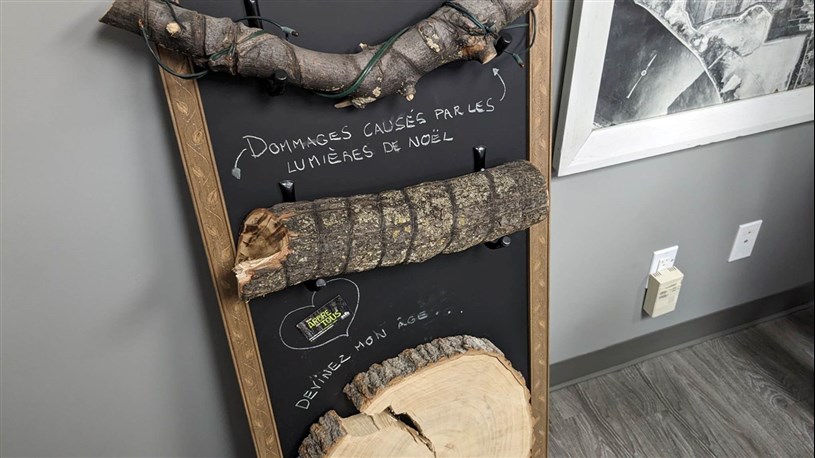 DOMMAGES CAUSÉS PAR LES
LUMIÈRES DE NOËL
ARBRE
TOUS
DEVINEZ MON ÂGE...